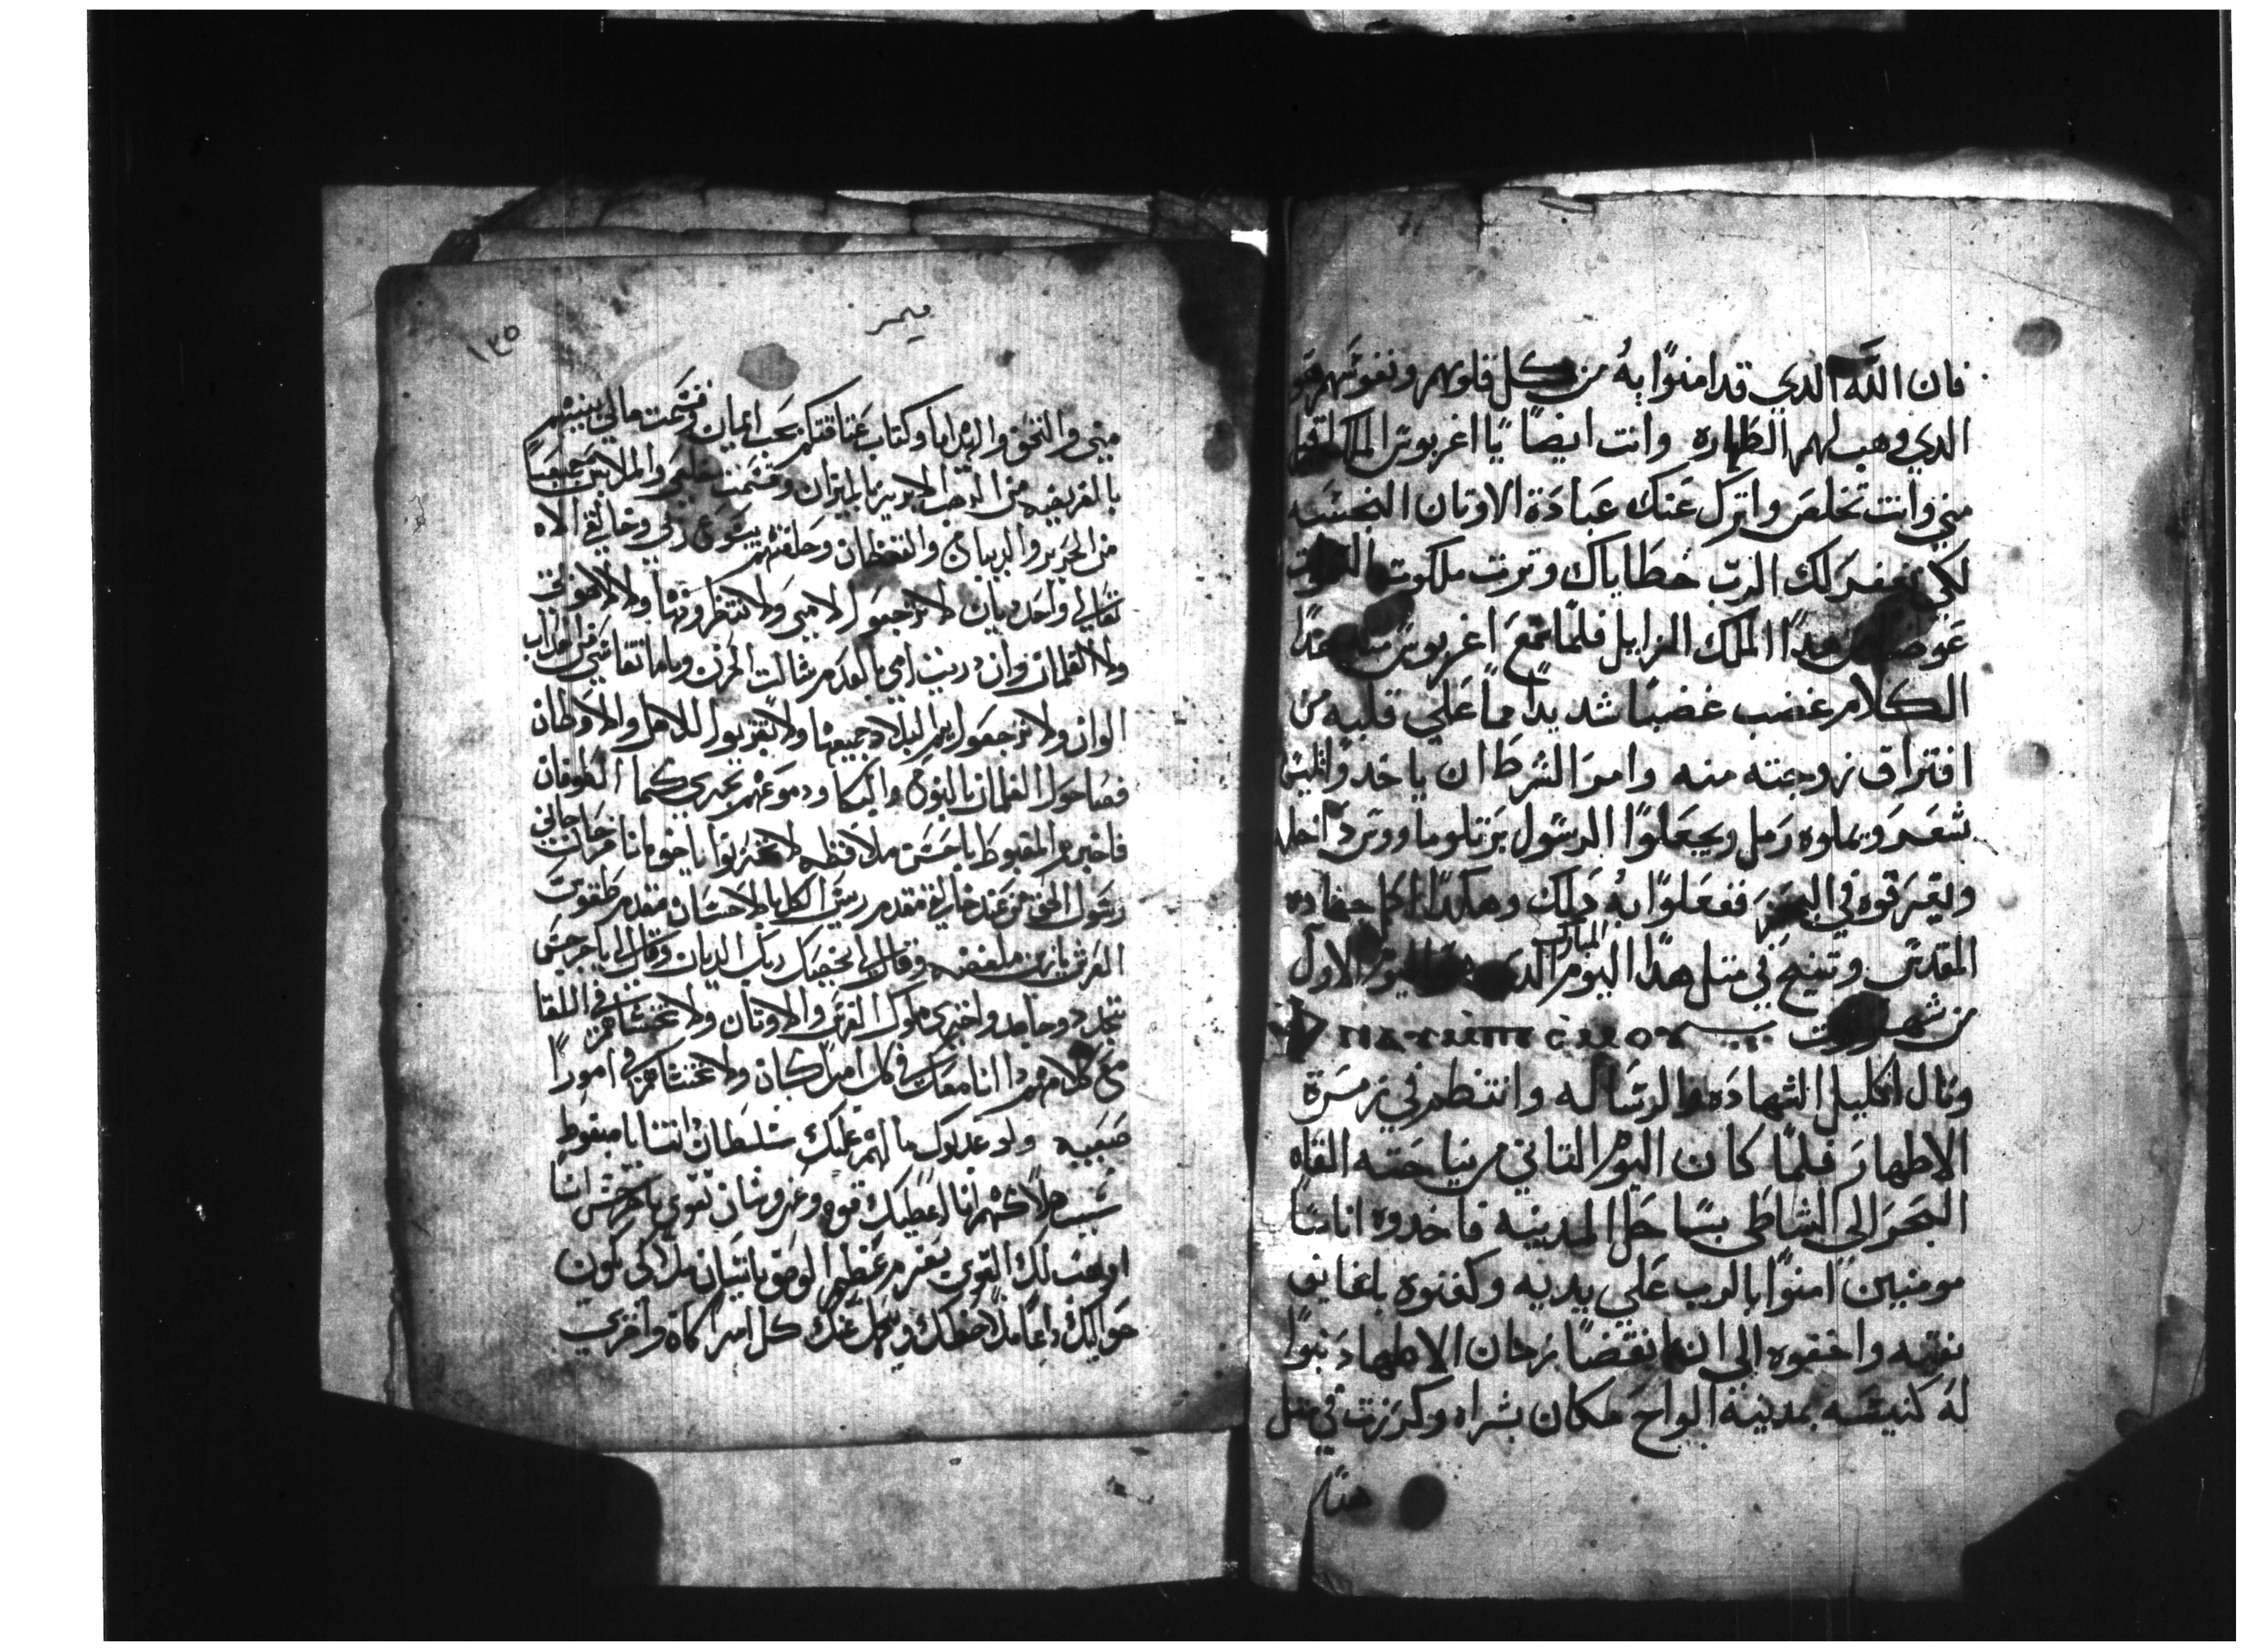 فان الله الدي قد امنوًا بهُ من كل قلوبهم ونفوسَهم هو
الدي وهب لهم الطهاره وانت ايضاً يًا اغربوس الملك
مني وانت تخلصَ واترك عَنك عَبادَة الاوتان النجسَه
لكي يغفر لك الربّ خطَاياك وترت ملكوت
عَوضاً عن هدًا الملك الزايل فلمًا سَمعَ اغربوسَ هدًا
الكلام غضب غضبًا شديدًا ممًا عَلي قلبه من
افتراق زوجته منه وامرَ الشرطَ ان ياخدوًا
شعَر ويملوه رَمل ويجعَلوًا الرسَول برَتلوماووسَ داخله
ويغرَقوه في البحَر ففعَلوًا بهُ دَلك وهكدًا اكمل جهاده
المقدسَ وتنيح في متل هدًا اليوم المبارك الاول
من شهر توت
ونال اكليل الشهادَه والرسَاله وانتظم في زمرَة
الاطهارَ فلمًا كان اليوم التاني رميَا جَتته القاه
البحَرَ الي الشاطَي بسَاحَل المدينه فاخدوه اناسَا
مومنين امنوًا بالرب عَلي يديه وكفنوه باكفاين
نقيه واخفوه الي ان انقضًا زمان الاضطهاد بنوًا
لهَ كنيسَه بمدينة الواحَ مكان بشراه وكرَزت في متل
هدًا
ميمر
١٣٥
مني والتخوت والهدايا وكتاب عَتاقتكم بحَب ايمان وقسَمت مالي بينهم
بالفريضه من الدهب الابريز بالميزان وقسَمت والملابسَ جميعًا
من الحَرير والديباج والقفطان وحَلفتهم بيسَوع ربي وخالقي الاه
تعَالي واحَد ديان لا ترجعَوا لامي ولا تنتظروتها ولا الاخوات
ولا الغلمان وان دريت امي بالعدم زادت الحزن وياما تقاسَي من عداب
الوان ولا ترجعَوا لهدا البلاد جميعها ولا تقربوا للاهل والاوطان
فصَاحَوا الغلمان بالنوحَ والبكا ودموعَهم تجري كما الطوفان
فاخبرهم المغبوطَ باحسَن ملافظه لا تحَزنوا يا اخوه انا فرحَان جاني
رسَول الحَق من عَند خالقي مقدم ريسَ الملايكه الاحسَان مقدم طَغوت
العَرش بازين ملفضه وقال لي يحَييك ربك الديان وقال لي يا جرجسَ
تجلد وجاهد واخزي ملوك الفرسَ والاوتان ولا تخشاهم في اللقا
مع كلامهم دا انا معَك في كل امرًا كان ولا تخشاهم في امورًا
صَعبه ولا عَدوك مالهم عَليك سَلطَان انتا يا مغبوطَ
سَبب هلاكهم انا اعطَيك قوه وعَز وشان تقوي يا جرجسَ انا
اوهَب لك القوي بعَزم عَظيم الوصَف يا شبان ملاكي يكون
حَواليك دايمًا ملاحَظك ويحَل عَنك كل امرًا كاه واخزي